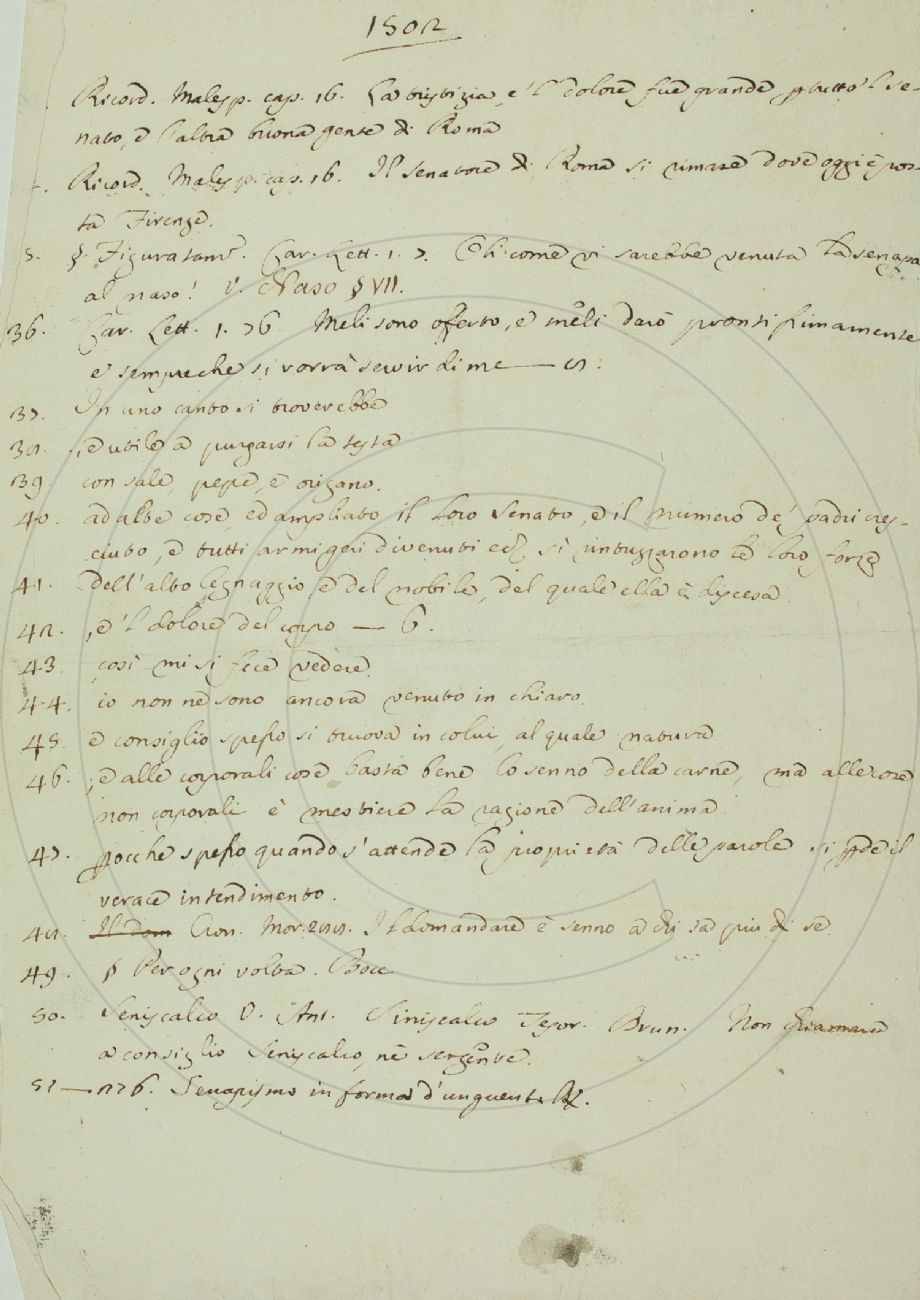 1502
Ricord. Malesp. cap. 16. La tristizia, e 'l dolore fue grande per tutto 'l Se-
nato, e l'altra buona gente di Roma
Ricord. Malesp. cap. 16. Il Senatore di Roma si rimase dove oggi è pos-
ta Firenze.
5. § Figuratam.e Car. Lett. 1. 7. Ohi come vi sarebbe venuta la senapa
al naso! V. Naso § VII.
36. Car. Lett. 1. 76. Meli sono offerto, e meli darò prontissimamente
e sempreche si vorrà servir di me — S:
37. In uno canto si troverebbe
38. ; e utile a purgarsi la testa
39. con sale, pepe, e origano.
40. ad alte cose, ed ampliato il loro Senato, e il numero de' padri cres-
ciuto, e tutti armigeri divenuti ec., si rintuzzarono le loro forze
41. dell'alto legnaggio, e del nobile, del quale ella è discesa.
42. , e 'l dolore del corpo — 6.
43. così mi si fece vedere.
44. io non ne sono ancora venuto in chiaro.
45. e consiglio spesso si truova in colui, al quale natura
46. ; e alle corporali cose basta bene lo senno della carne, ma alle cose
non corporali è mestiere la ragione dell'anima
47. perocche spesso quando s'attende la proprietà delle parole si perde il
verace intendimento.
48. Il dom Cron. Mor. 288. Il domandare è senno a chi sa più di se
49. § Per ogni volta. Bocc.
50. Seniscalco V. Ant. Siniscalco Tesor. Brun. Non chiamare
a consiglio Seniscalco, nè sergente.
51 — 1276. Senapismo in forma d'unguento R.